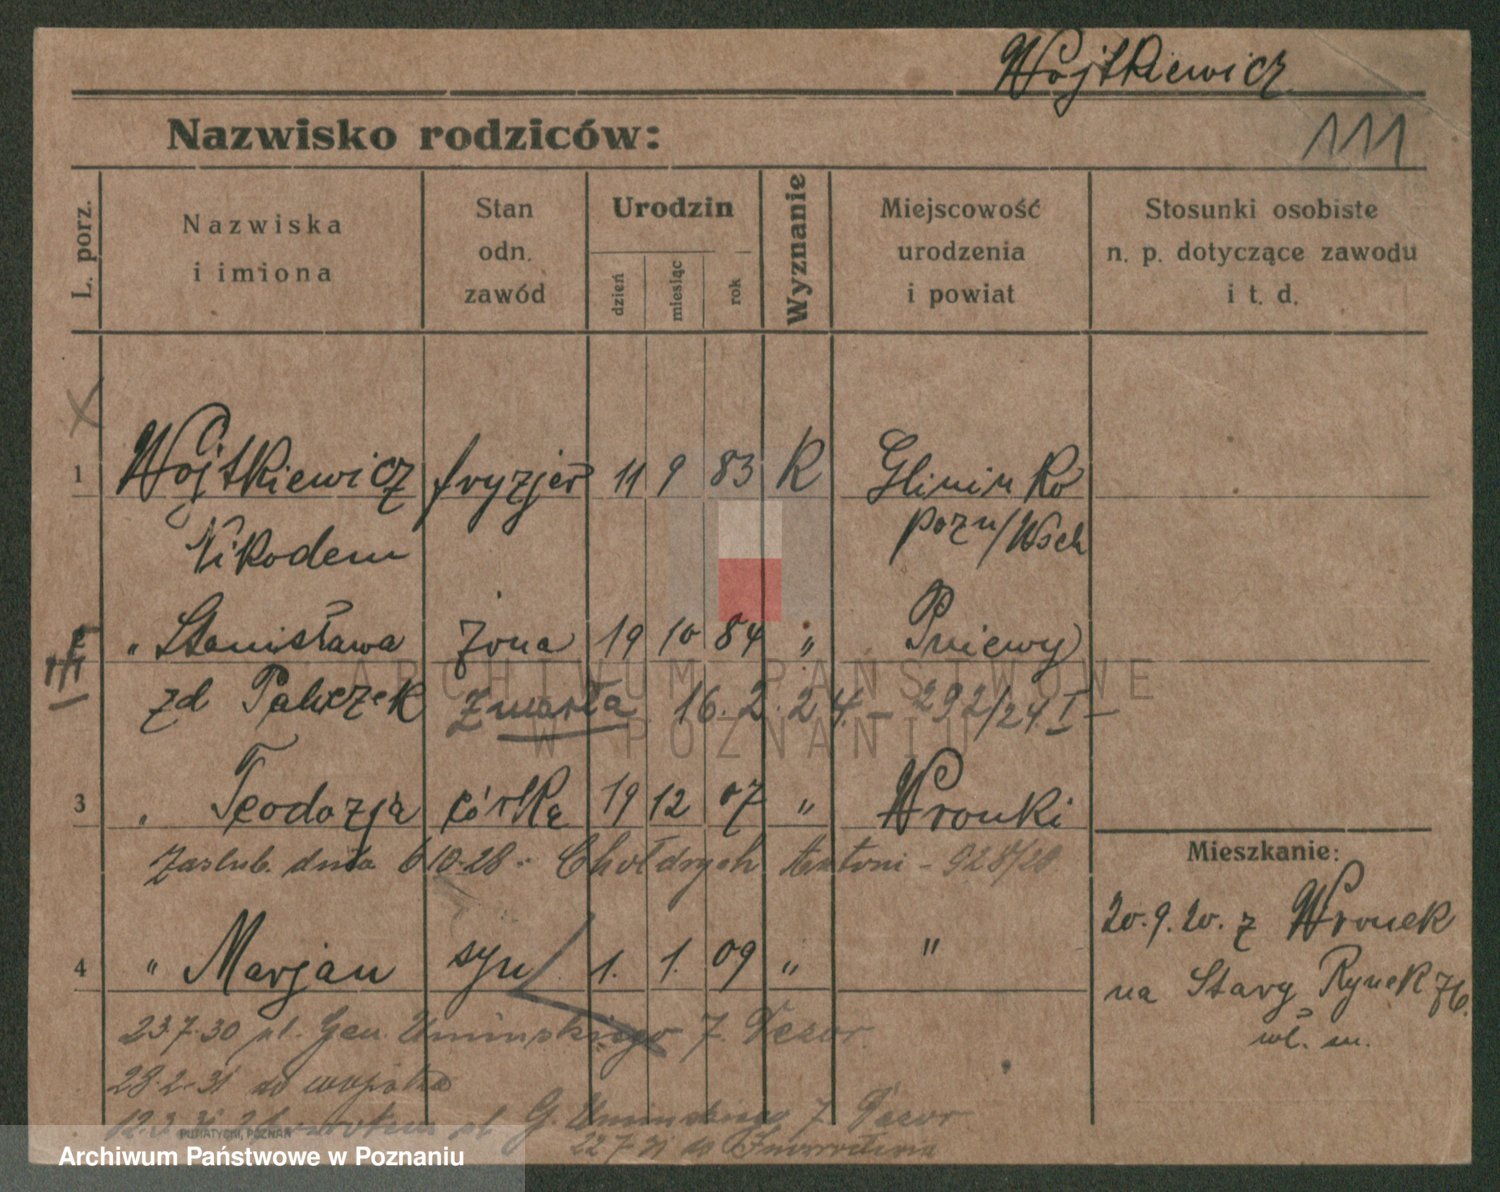 Wojtkiewicz
Nazwisko rodziców:
111
L. porz.
Nazwiska
i imiona
Stan
odn.
zawód
Urodzin
dzień
miesiąc
rok
Wyznanie
Miejscowość
urodzenia
i powiat
Stosunki osobiste
n. p. dotyczące zawodu
i t. d.
1 Wojtkiewicz fryzjer 11 9 83 R Glininko
Nikodem pozn/Wsch
" Stanisława żona 19 10 84 " Pniewy
zd zmarła 16.2.24. – 292/24 I –
3 " Teodozja córka 19 12 07 " Wronki
Zaślub. dnia 6 10-28 Antoni – 928/28
Mieszkanie:
20.9.20. z Wronek
na Stary Rynek 76
wł. m.
4 " Marjan syn 1. 1. 09 " "
23.7.30 pl. Gen. Umińskiego 7.
28.2.31 do wojska
12.3.31 pl. G. Umińskiego 7
22.7.31 do
ARCHIWUM PAŃSTWOWE
W POZNANIU
Archiwum Państwowe w Poznaniu